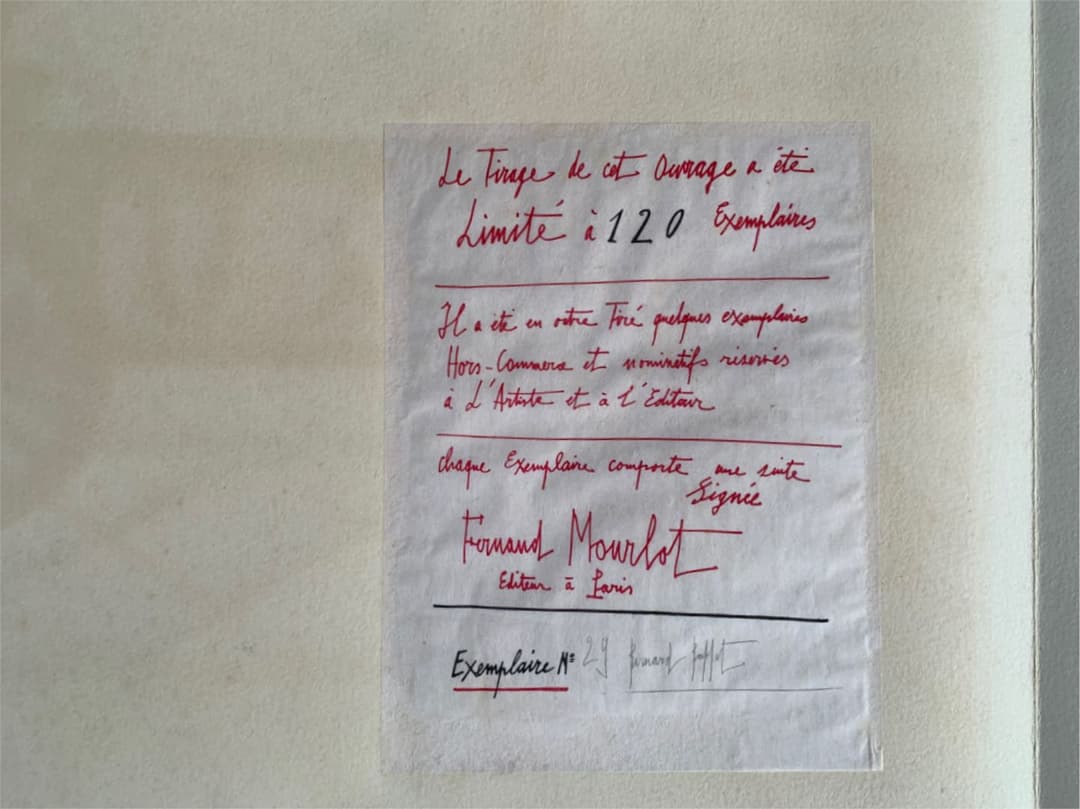 Le Tirage de cet Ouvrage a été
Limité à 120 Exemplaires
Il a été en outre Tiré quelques exemplaires
Hors-Commerce et nominatifs réservés
à L'Artiste et à l'Editeur
chaque Exemplaire comporte une suite
Signée
Fernand Mourlot
Editeur à Paris
Exemplaire Nº 29 Fernand